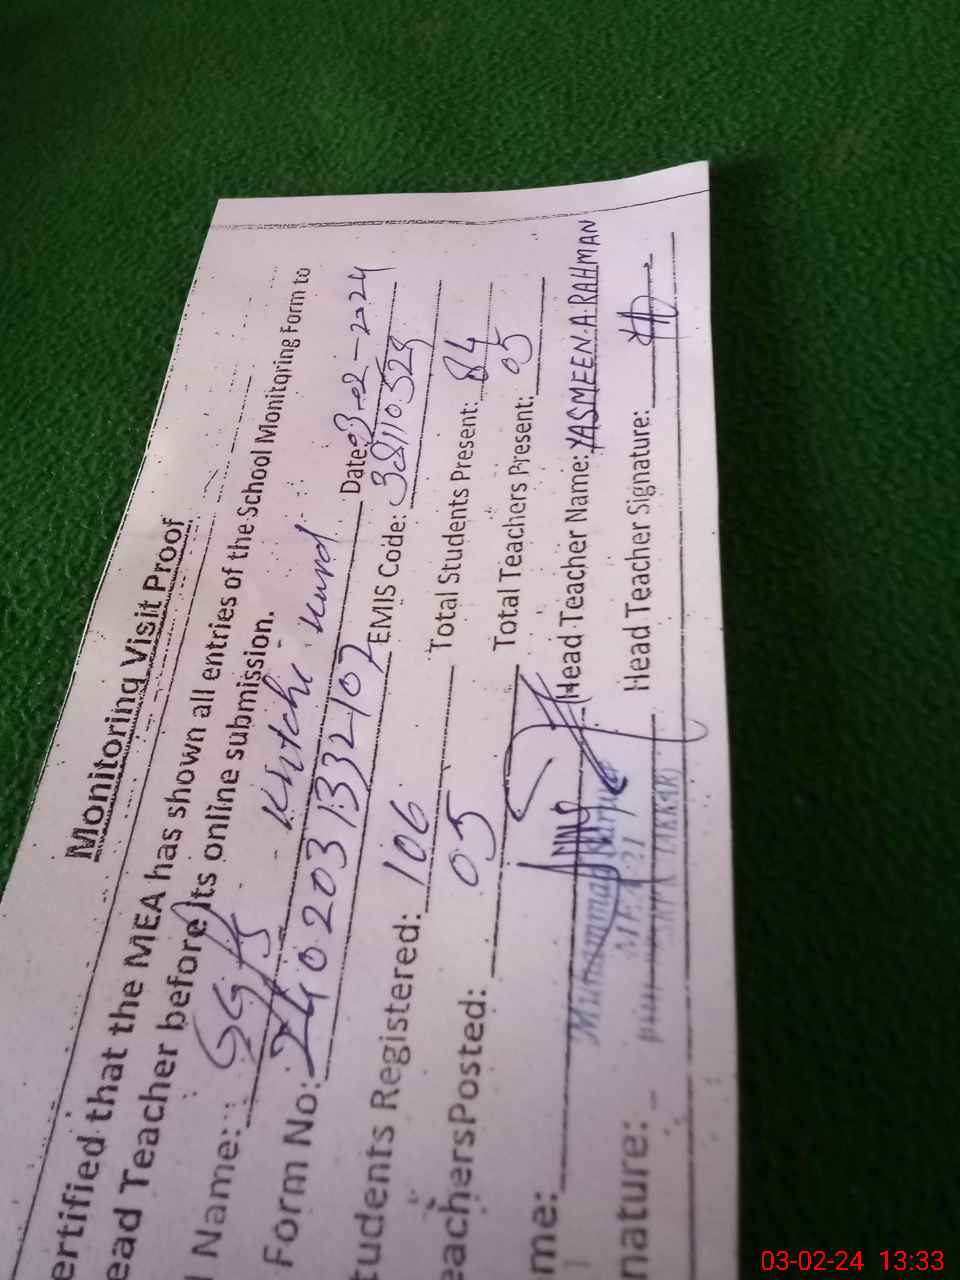 Monitoring Visit Proof
ertified that the MEA has shown all entries of the School Monitoring Form to
ead Teacher before its online submission.
l Name: GGPS Khtchi Kurd Date: 03-02-2024
Form No: 2402031332102 EMIS Code:
tudents Registered: 106 Total Students Present: 84
eachersPosted: 05 Total Teachers Present: 05
me: Head Teacher Name: YASMEEN.A.RAHMAN
nature: Head Teacher Signature:
Muhammad
03-02-24 13:33